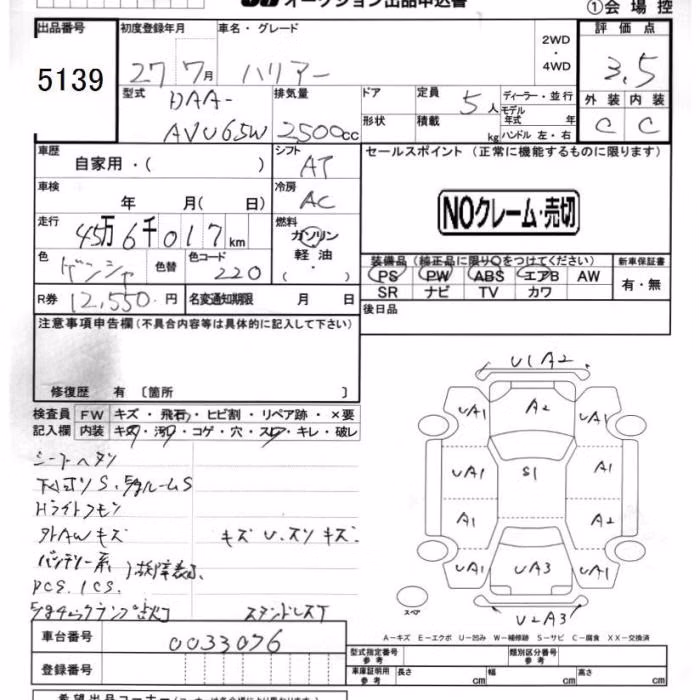 オークション出品申込書
①会場控
出品番号 初度登録年月 車名・グレード 2WD ・ 4WD 評価点
5139 27 7月 ハリアー 3.5
型式 DAA-AVU65W 排気量 2500cc ドア 形状 定員 5人 積載 kg ディーラー・並行 モデル年式 年 ハンドル 左・右 外装 内装
C C
車歴 自家用・( ) シフト AT セールスポイント (正常に機能するものに限ります)
車検 年 月( 日) 冷房 AC
NOクレーム・売切
走行 45万6千017km 燃料 ガソリン 軽油 ・ ( )
色 ゲンシャ 色替 色コード 220 装備品 (純正品に限り○をつけてください) 新車保証書
PS PW ABS エアB AW 有・無
R券 12,550円 名変通知期限 月 日 SR ナビ TV カワ
後日品
注意事項申告欄 (不具合内容等は具体的に記入して下さい)
修復歴 有 〔箇所 〕
検査員 FW キズ・飛石・ヒビ割・リペア跡・×要
記入欄 内装 キズ・汚れ・コゲ・穴・スレ・キレ・破レ
シートヘタリ
Hライトクモリ
外AWキズ キズU.スリキズ
バッテリー系
PCS. ICS. 故障表示
UIA2
UA1 A2 UA1
UA1 S1 A1
A1 A2
UA1 UA3 UA1
U2A3
スペア
A-キズ E-エクボ U-凹み W-補修跡 S-サビ C-腐食 XX-交換済
車台番号 0033076
登録番号
型式指定番号 参考 類別区分番号 参考
車庫証明用 参考 長さ cm 幅 cm 高さ cm
希望出品コーナー